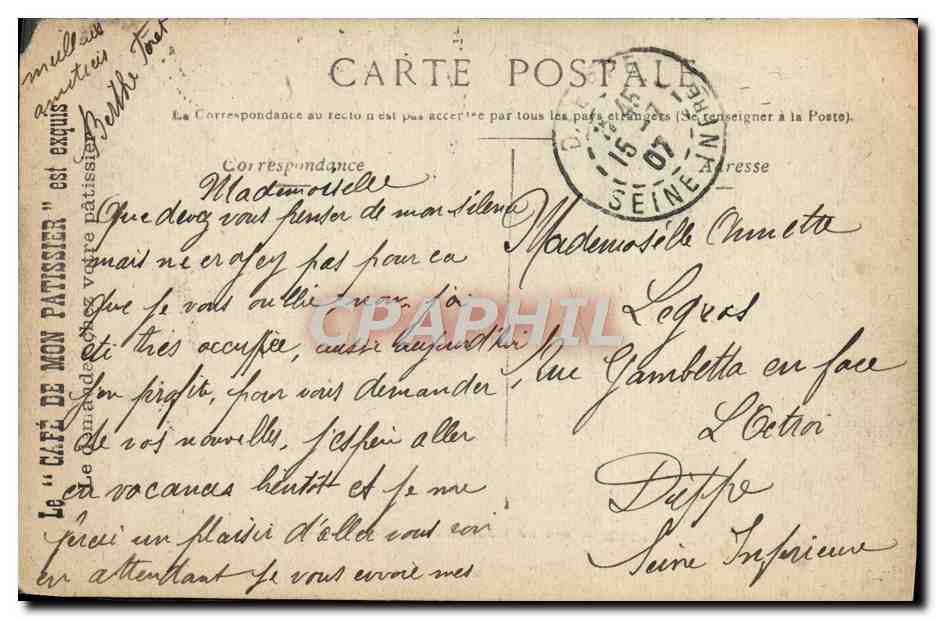 CARTE POSTALE
La Correspondance au recto n'est pas acceptée par tous les pays étrangers (Se renseigner à la Poste).
Correspondance
Adresse
DIEPPE
15 - 7
07
SEINE INFRE
Mademoiselle
Que devez vous penser de mon silence
mais ne croyez pas pour ca
que je vous oublie, non. j'ai
été très occupée, aussi aujourd'hui
j'en profite, pour vous demander
de vos nouvelles, j'espère aller
en vacances bientôt et je me
ferai un plaisir d'aller vous voir
en attendant je vous envoie mes
meilleures
amitiés
Berthe
Mademoiselle Annette
Legros
Rue Gambetta en face
L'Octroi
Dieppe
Seine Inferieure
Le "CAFÉ DE MON PATISSIER" est exquis
Le demander chez votre pâtissier
CPAPHIL